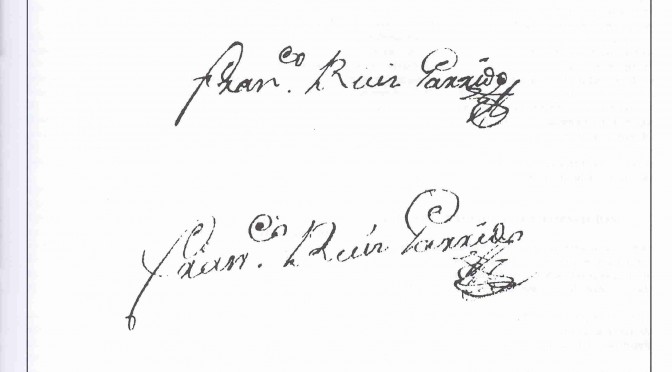 Fran.co Ruiz Garrido
Fran.co Ruiz Garrido